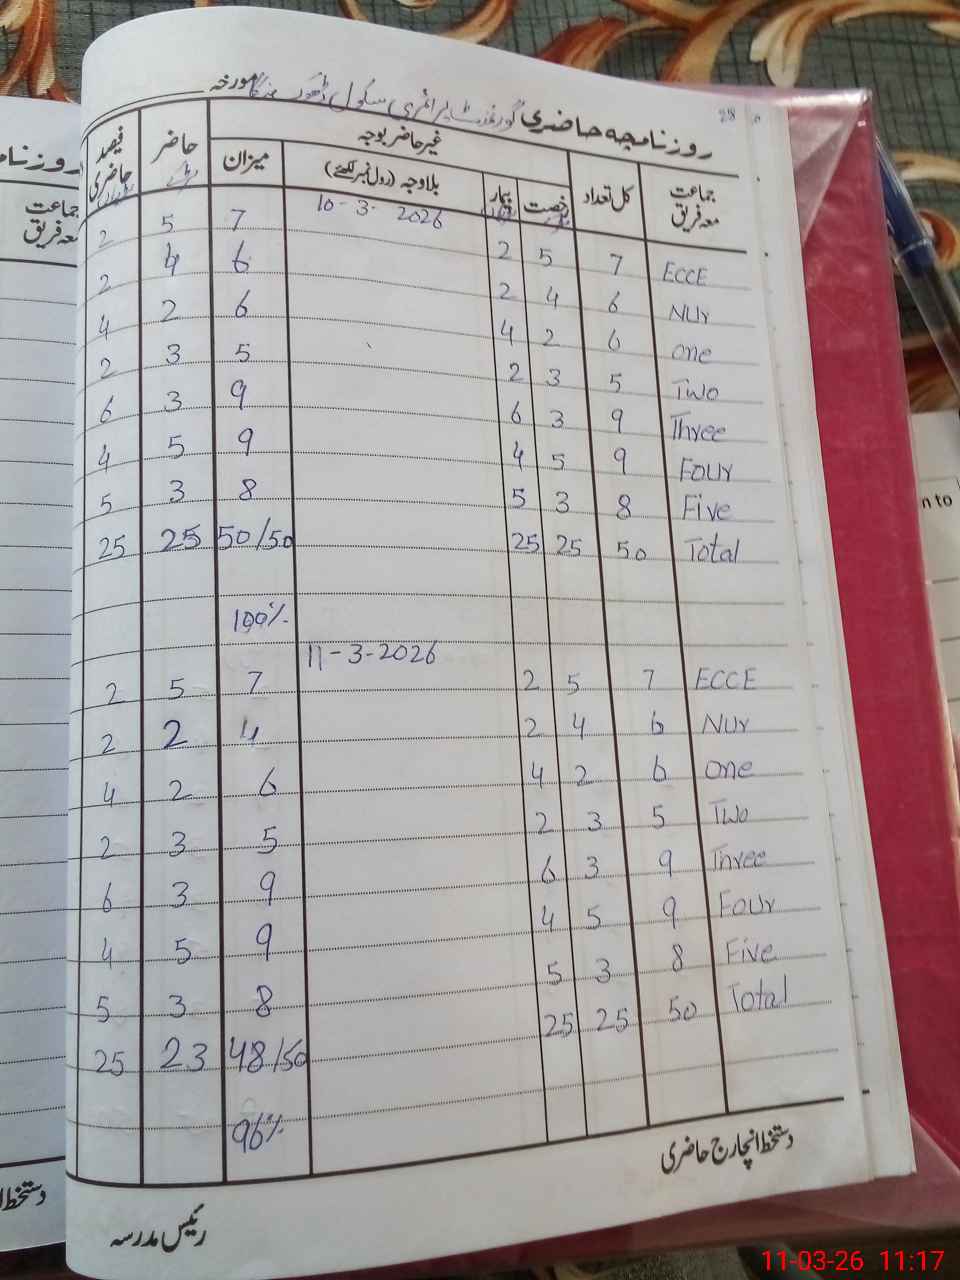 28
روزنامچہ حاضری گورنمنٹ پرائمری سکول مورخہ
جماعت معہ فریق کل تعداد غیر حاضر بوجہ حاضر فیصد حاضری
رخصت بیمار بلاوجہ (رول نمبر لکھئے) میزان
10-3-2026
ECCE 7 5 2 7 5 2
Nur 6 4 2 6 4 2
one 6 2 4 6 2 4
Two 5 3 2 5 3 2
Three 9 3 6 9 3 6
Four 9 5 4 9 5 4
Five 8 3 5 8 3 5
Total 50 25 25 50/50 25 25
100%
11-3-2026
ECCE 7 5 2 7 5 2
Nur 6 4 2 4 2 2
one 6 2 4 6 2 4
Two 5 3 2 5 3 2
Three 9 3 6 9 3 6
Four 9 5 4 9 5 4
Five 8 3 5 8 3 5
Total 50 25 25 48/50 23 25
96%
دستخط انچارج حاضری
رئیس مدرسہ
جماعت
معہ فریق
n to
11-03-26 11:17